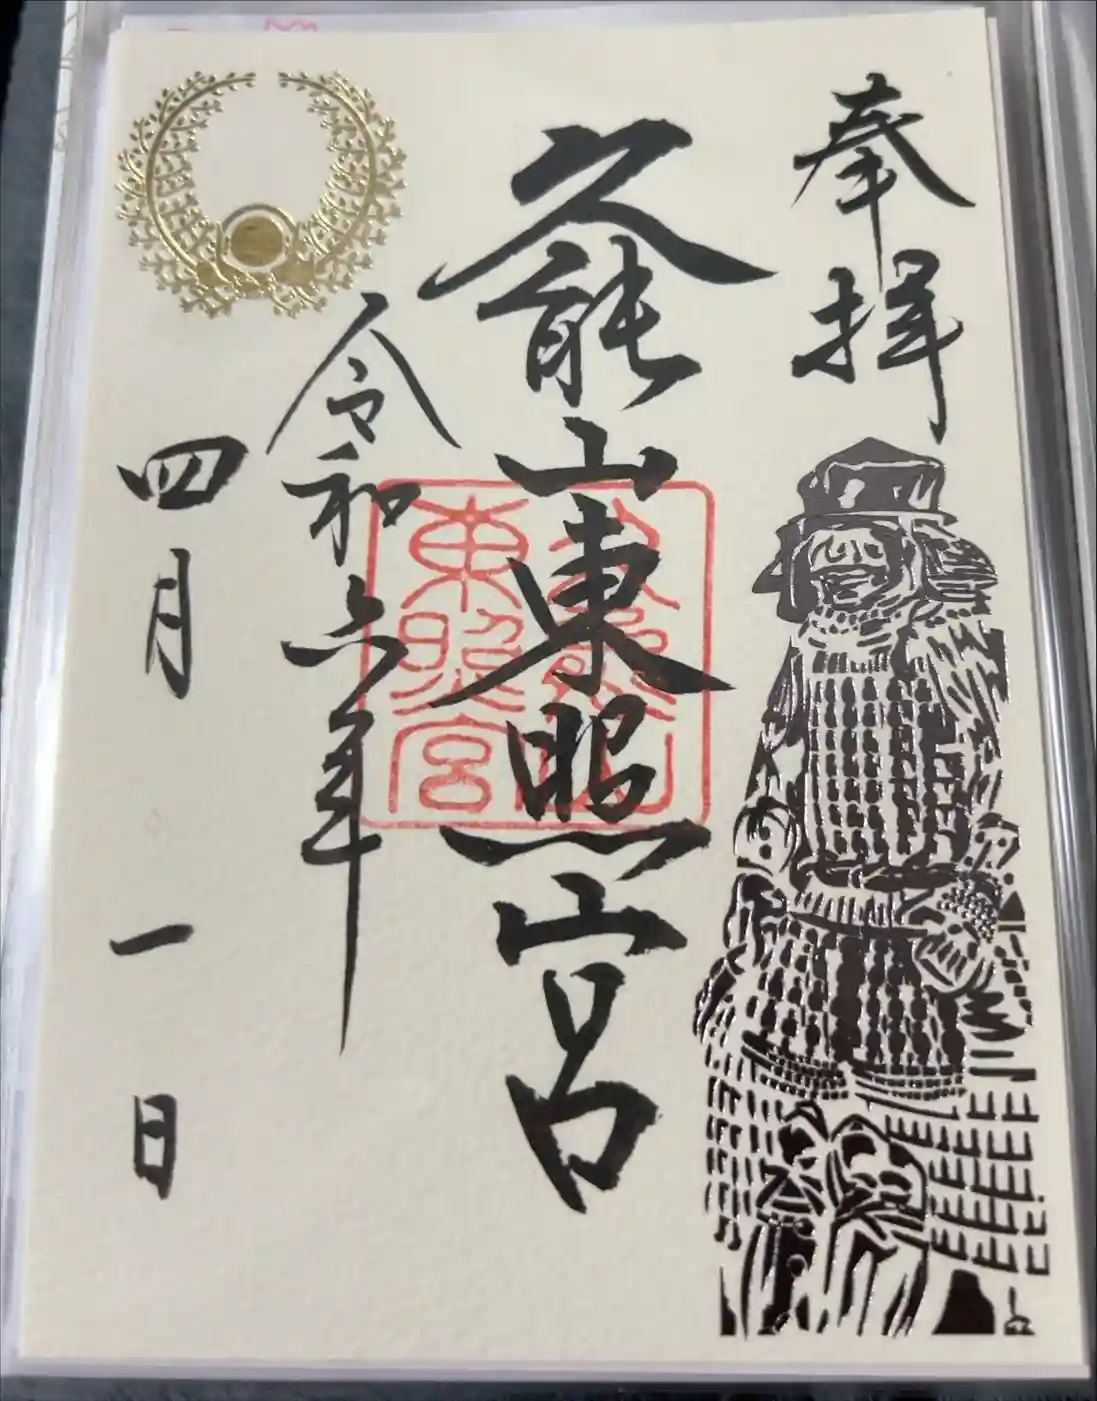 奉拝
久能山東照宮
久能山
東照宮
令和六年
四月一日